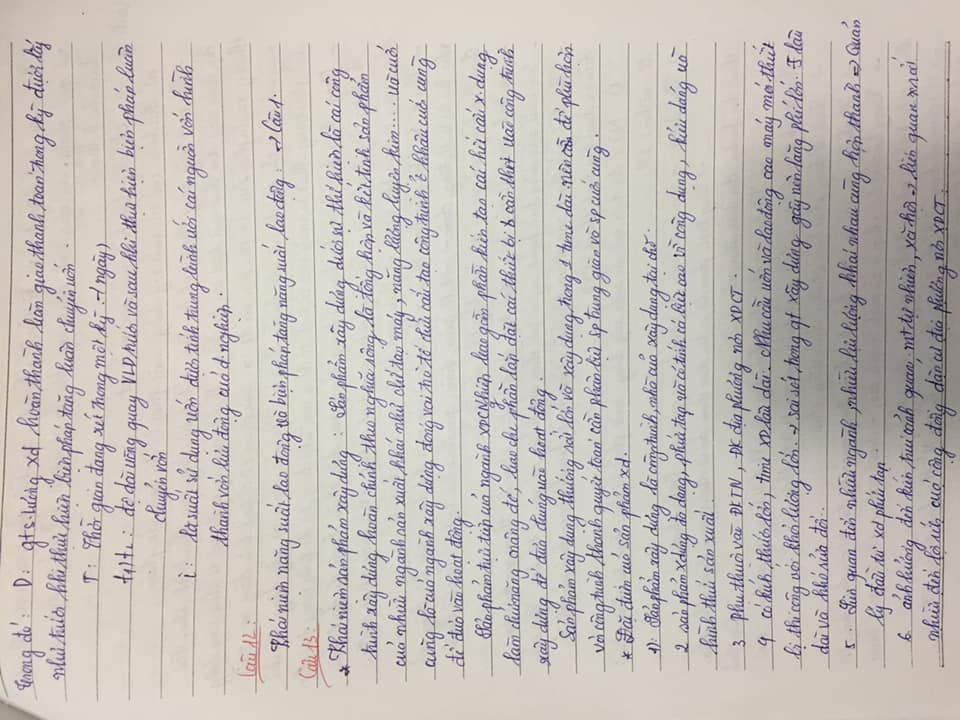 Trong đó: D: gts-lượng xd hoàn thành bàn giao thanh toán trong kỳ dưới kỳ
như trước khi thực hiện biện pháp tăng luân chuyển vốn
T: Thời gian đang xét trong một kỳ (→ ngày)
t1, t2: độ dài vòng quay VLĐ trước và sau khi thực hiện biện pháp luân
chuyển vốn
i: ls suất sử dụng vốn được tính trung bình với các nguồn vốn hình
thành vốn lưu động của d nghiệp.
Câu 12:
Khái niệm năng suất lao động và biện pháp tăng năng suất lao động: → Câu 1.
Câu 13:
* Khái niệm sản phẩm xây dựng: Sản phẩm xây dựng dưới sự thể hiện là các công
trình xây dựng hoàn chỉnh theo nghĩa rộng, là tổng hợp và kết tinh sản phẩm
của nhiều ngành sản xuất khác như chế tạo máy, năng lượng, luyện kim... và với
cùng là của ngành xây dựng đóng vai trò tổ chức cấu tạo công trình ở khâu cuối cùng
để đưa vào hoạt động.
Sản phẩm trực tiếp của ngành XDCN chỉ bao gồm phần kiến tạo các kết cấu x. dựng
làm chức năng nâng đỡ, bao che, phần lắp đặt các thiết bị cần thiết của công trình
xây dựng để đưa chúng vào hoạt động.
Sản phẩm xây dựng thường rất lớn và xây dựng trong 1 time dài nên để phù hợp
với công trình, thanh quyết toán cần phân biệt sp trung gian và sp cuối cùng.
* Đặc điểm của sản phẩm xd.
1) Sản phẩm xây dựng là công trình, nhà của xây dựng tại chỗ.
2 sản phẩm x.dựng đa dạng, phức tạp và có tính cá biệt cao về công dụng, kiểu dáng và
hình thức sản xuất.
3 phụ thuộc vào ĐKTN, ĐK địa phương nơi XDCT.
4 có kích thước lớn, time XD lâu dài. cNhu cầu vốn và lao động cao máy móc thiết
bị thi công với khối lượng lớn. → sai sót trong qt xây dựng gây nên lãng phí lớn. Tồn
tại và khó sửa đổi.
5. Liên quan đến nhiều ngành, nhiều lực lượng khác nhau cùng hợp thành ⇒ Quản
lý đầu tư xd phức tạp
6. ảnh hưởng đến kiến trúc cảnh quan, mt tự nhiên, xã hội → liên quan
nhiều đến lợi ích của cộng đồng dân cư địa phương nơi XDCT.